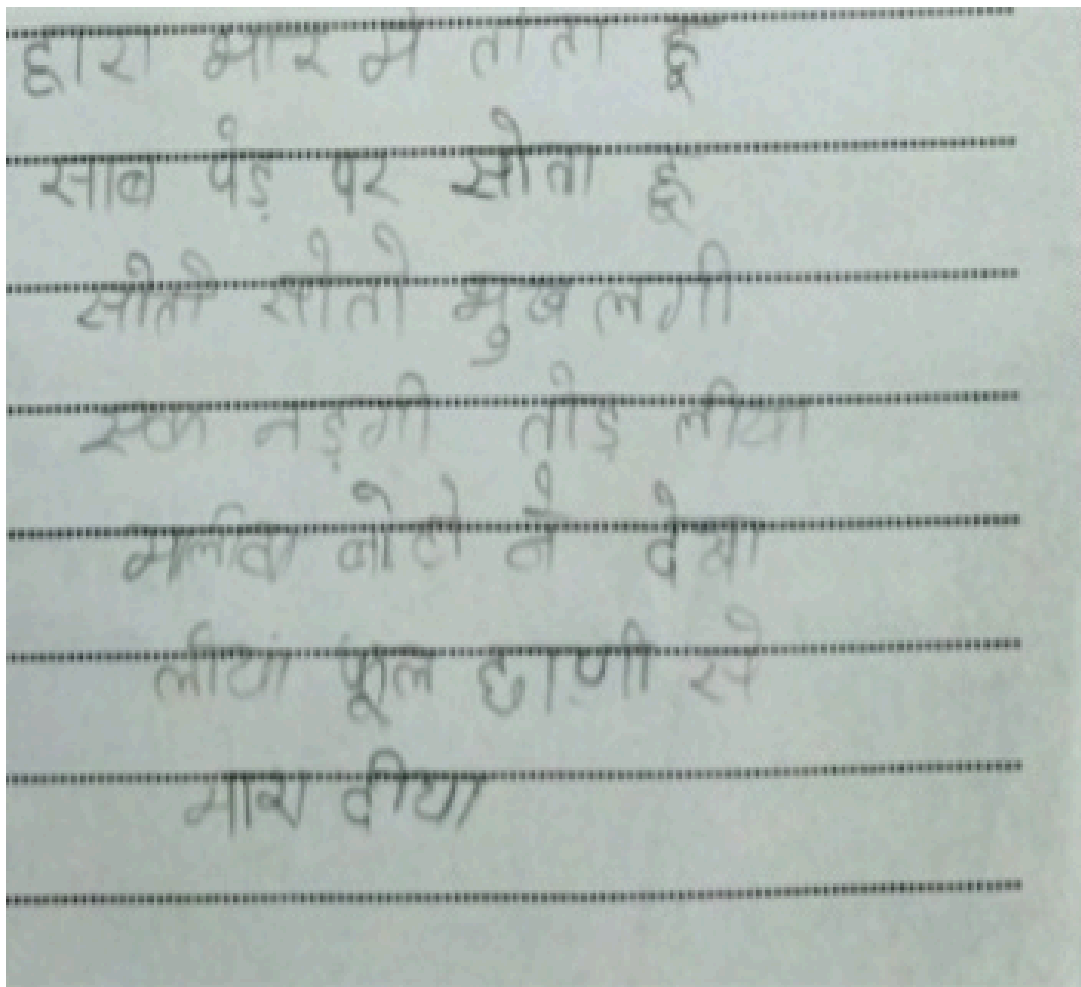 हारा भार मे तोता हू
साब पेड़ पर सोता हू
सोते सोतो भुख लगी
एक नड़गी तोड़ लीया
मलीक बोटो ने देखा
लीया फूल छाणी से
मारा दीया